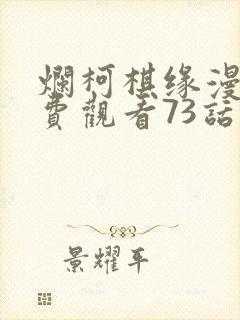 爛柯棋缘漫
費觀看73話
景耀平